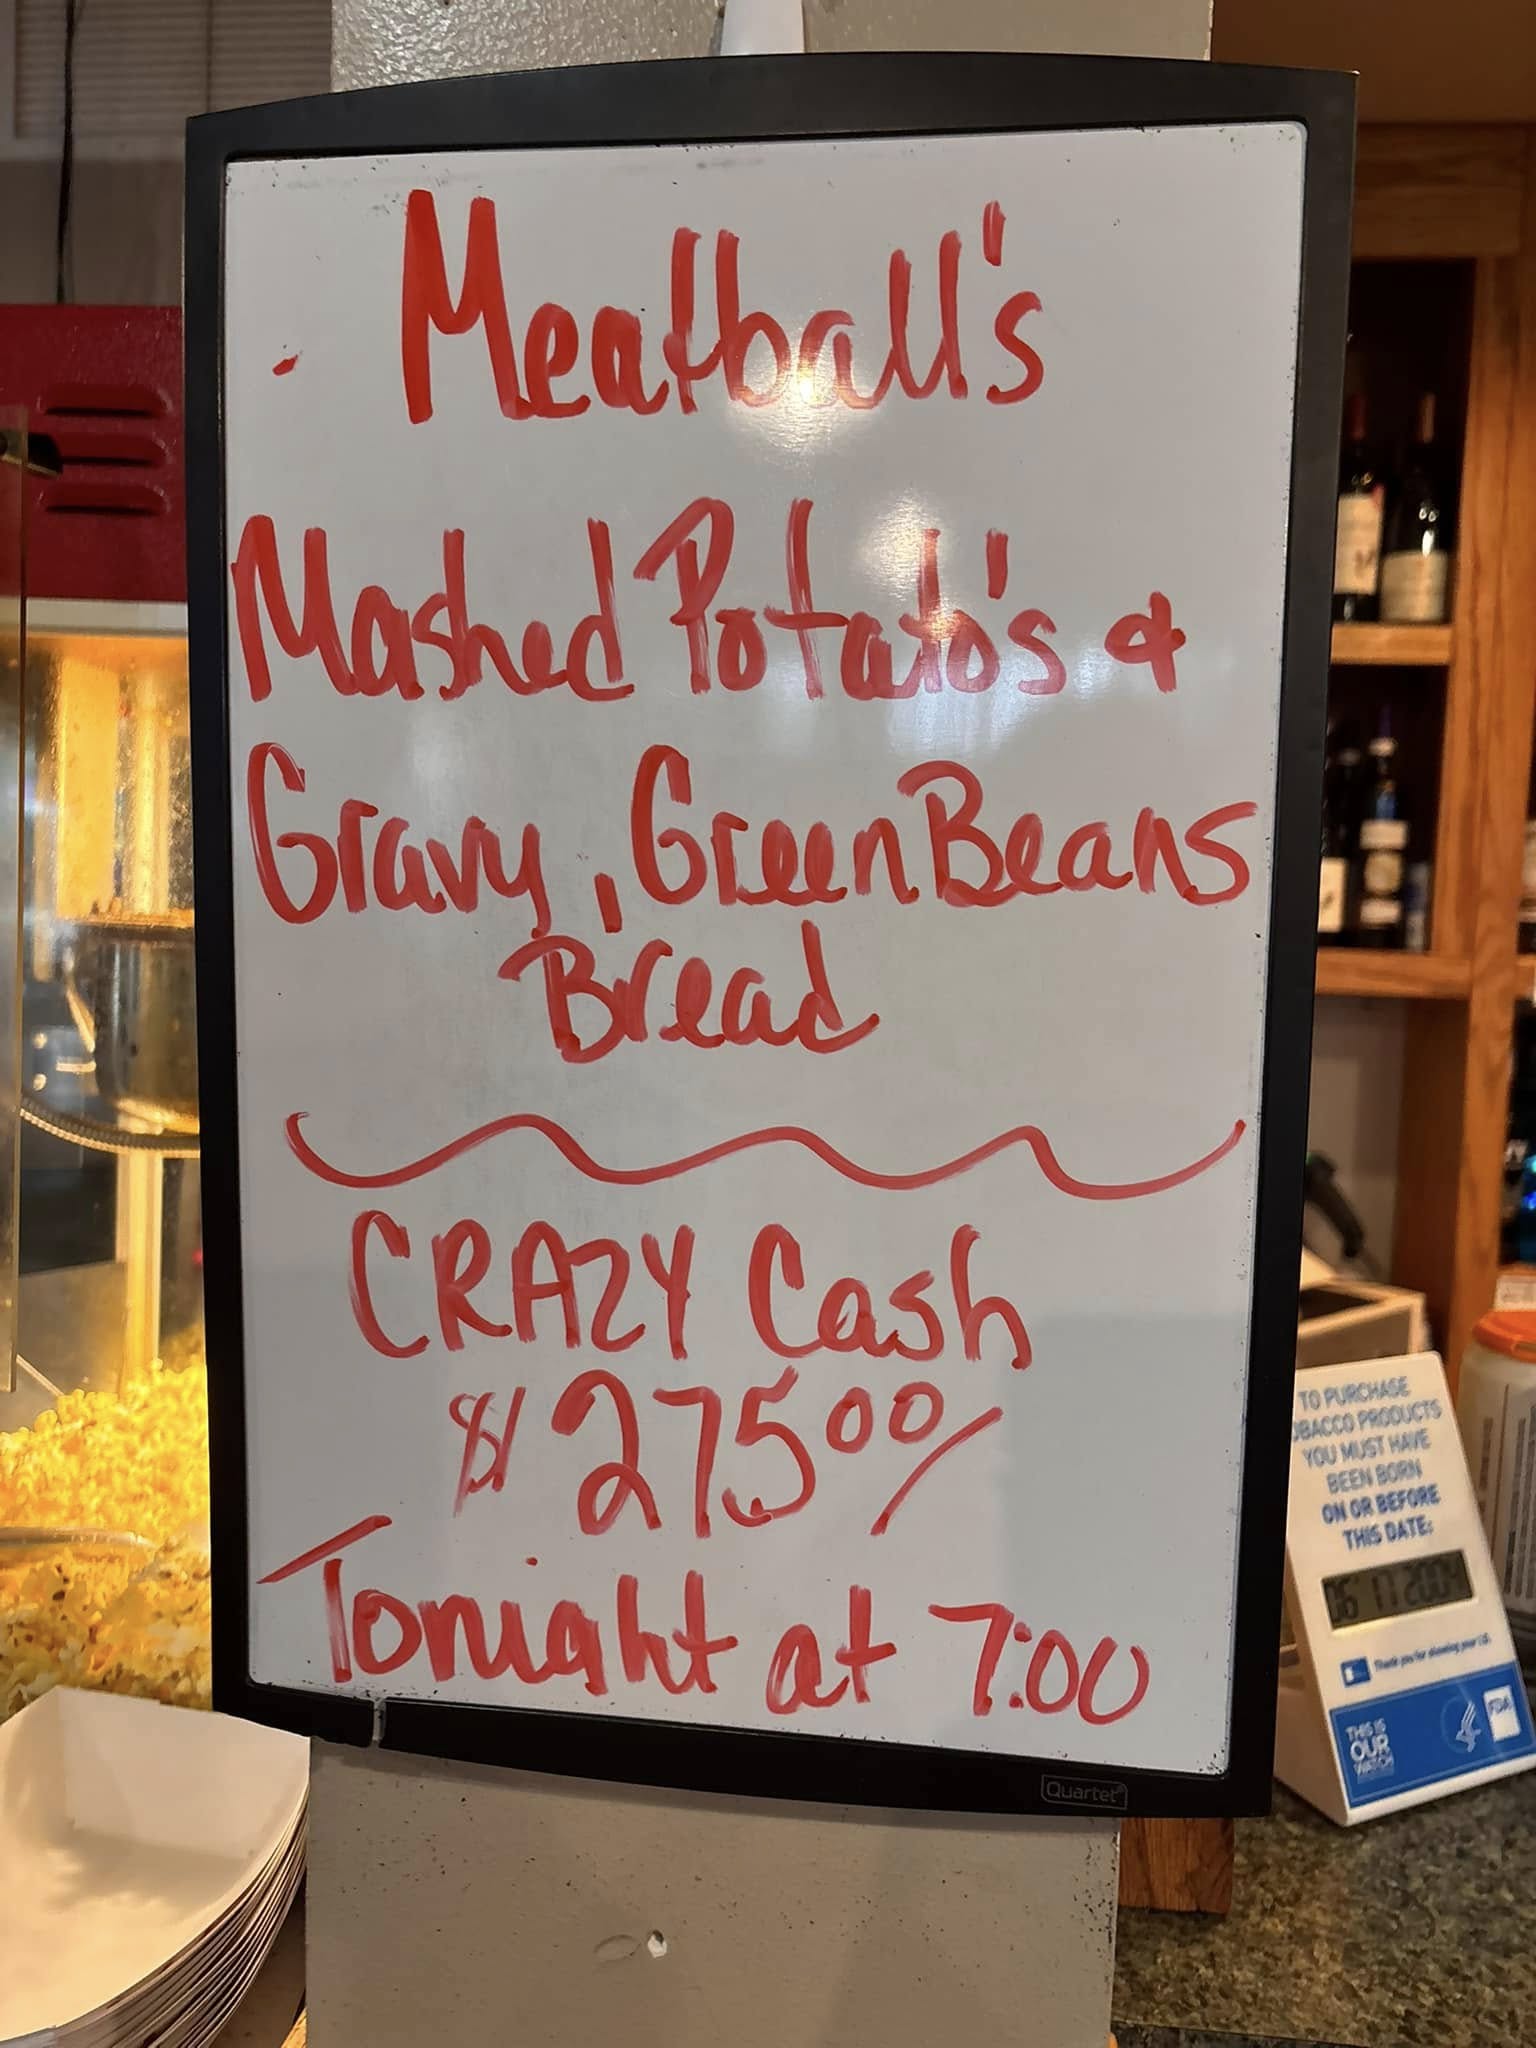 Meatball's
Mashed Potato's &
Gravy, Green Beans
Bread
CRAZY Cash
$275.00/
Tonight at 7:00
Quartet
TO PURCHASE
TOBACCO PRODUCTS
YOU MUST HAVE
BEEN BORN
ON OR BEFORE
THIS DATE:
06 17 2004
Thank you for showing your I.D.
THIS IS
OUR
WATCH
FDA